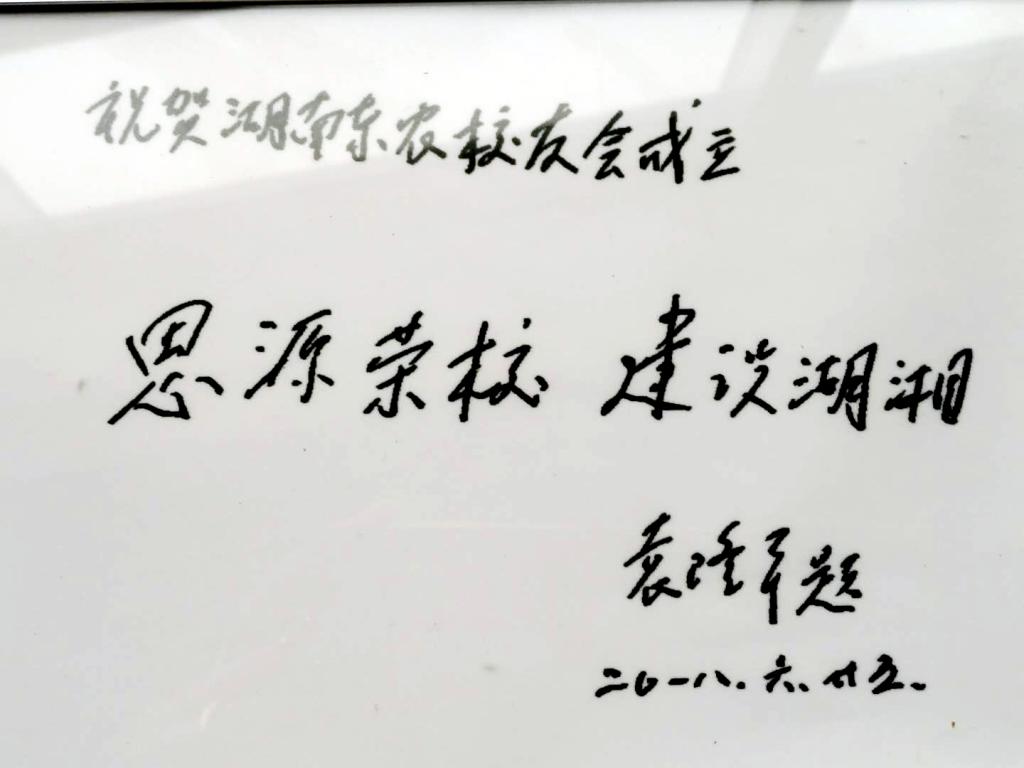 祝贺湖南东农校友会成立
思源荣校 建设湖湘
袁隆平题
二〇一八.六.廿五.